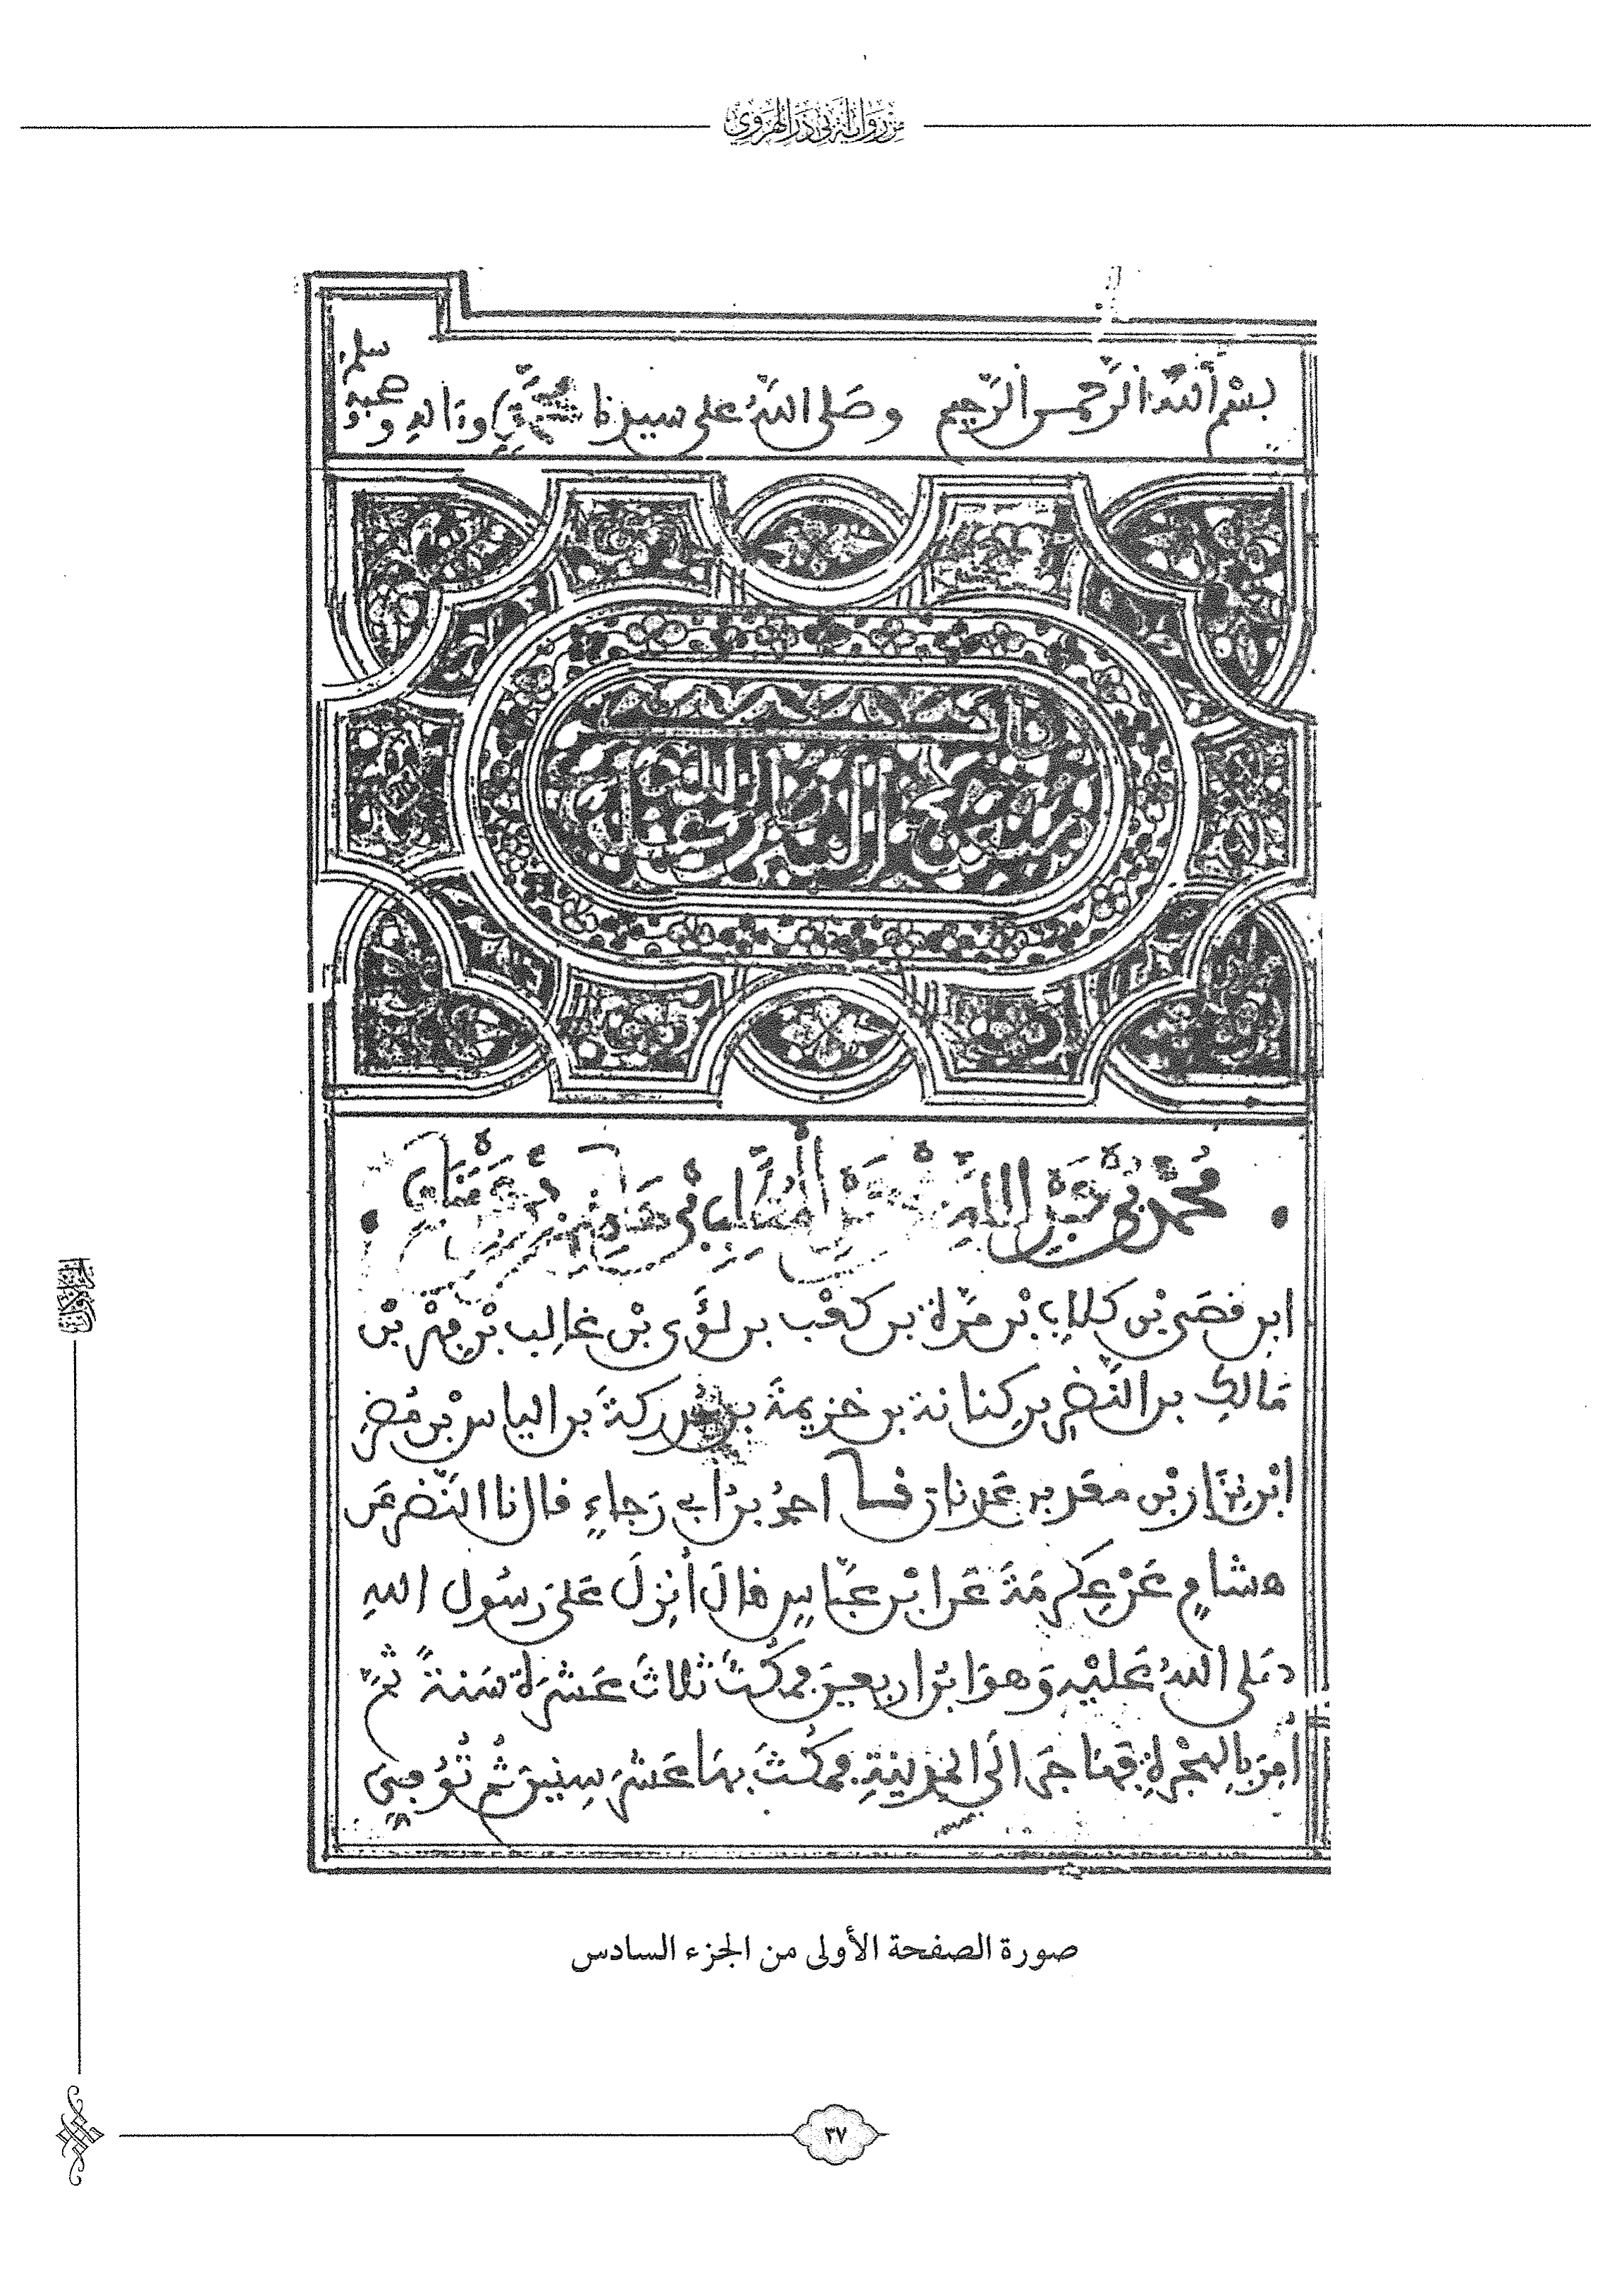 من رواية أبي ذر الهروي
بسم الله الرحمن الرحيم وصلى الله على سيدنا محمد وءاله وصحبه وسلم
باب
مبعث النبي صلى الله عليه
محمد بن عبد الله بن عبد المطلب بن هاشم بن عبد مناف
ابن قصي بن كلاب بن مرة بن كعب بن لؤي بن غالب بن فهر بن
مالك بن النضر بن كنانة بن خزيمة بن مدركة بن الياس بن مضر
ابن نزار بن معد بن عدنان نا احمد بن أبي رجاء قال نا النضر عن
هشام عن عكرمة عن ابن عباس قال أنزل على رسول الله
صلى الله عليه وهو ابن اربعين فمكث ثلاث عشرة سنة ثم
أمر بالهجرة فهاجر الى المدينة فمكث بها عشر سنين ثم توفي
صورة الصفحة الأولى من الجزء السادس
٣٧